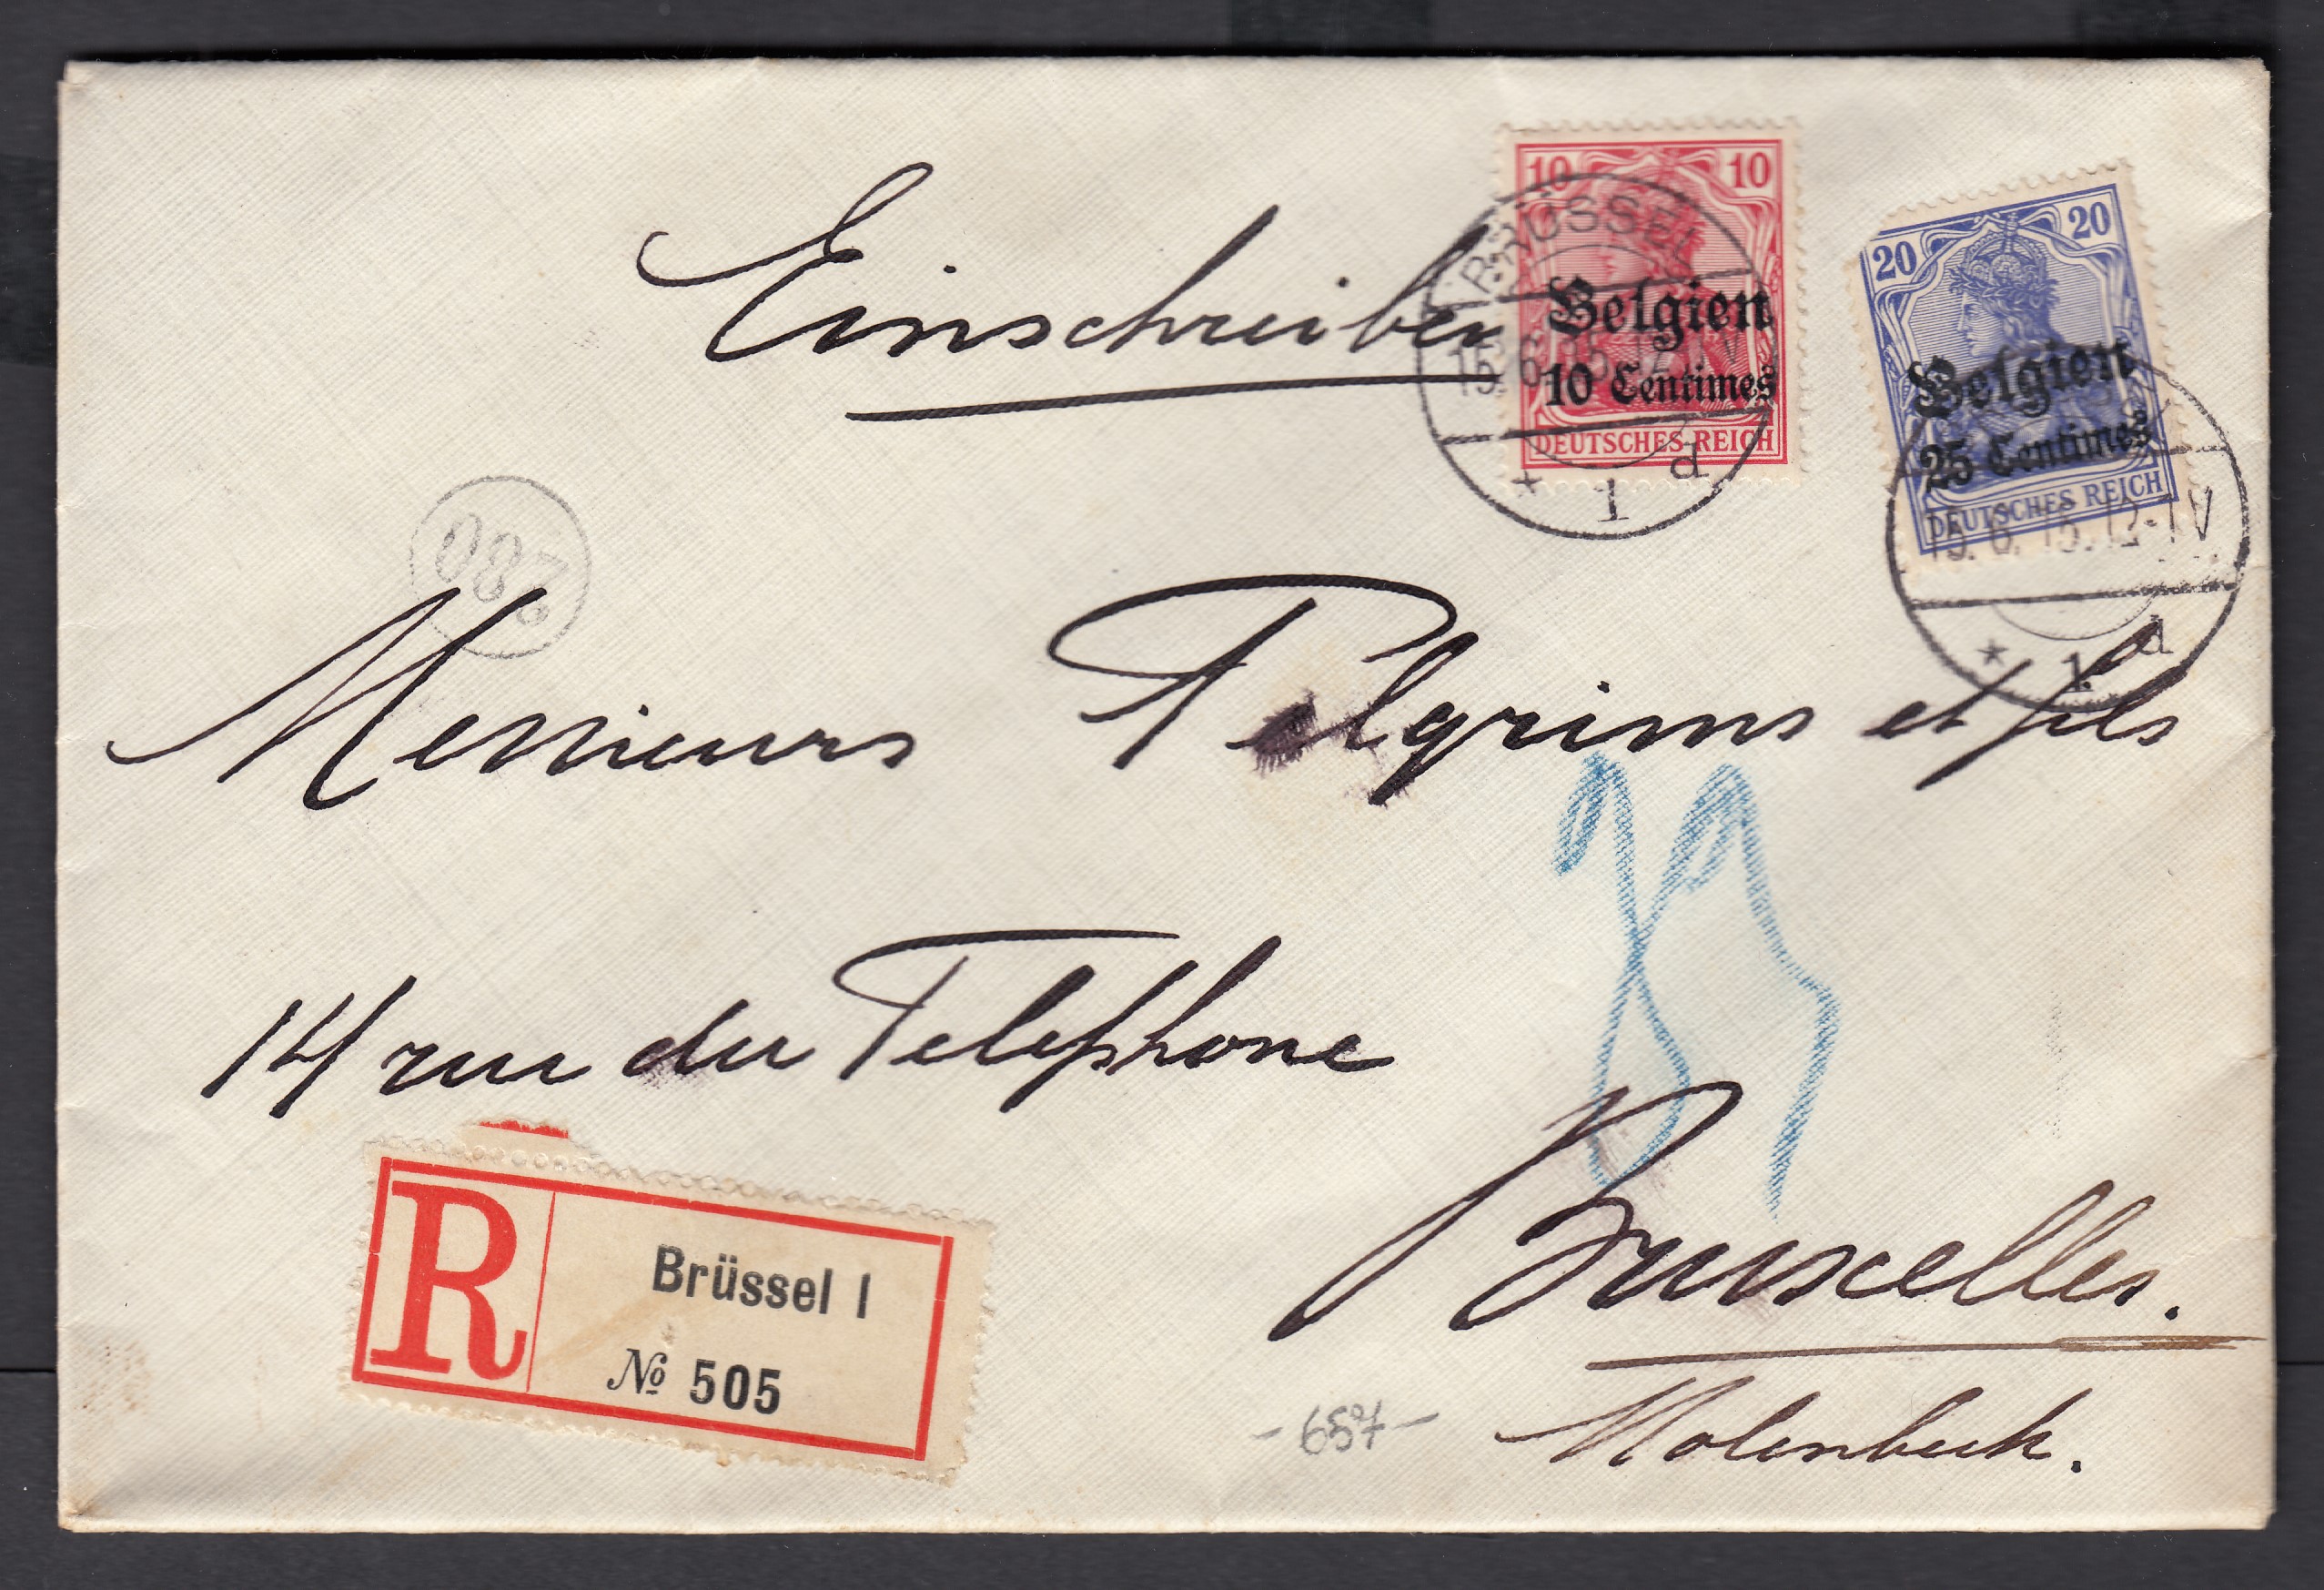 Einschreiben
10 10
BRÜSSEL
Belgien
10 Centimes
DEUTSCHES REICH
15.6.15.12-1V
* 1 d
20 20
Belgien
25 Centimes
DEUTSCHES REICH
15.6.15.12-1V
* 1 d
280
Messieurs Pelgrims et fils
14 rue du Telephone
Bruxelles.
Molenbeek.
R
Brüssel 1
№ 505
- 657 -